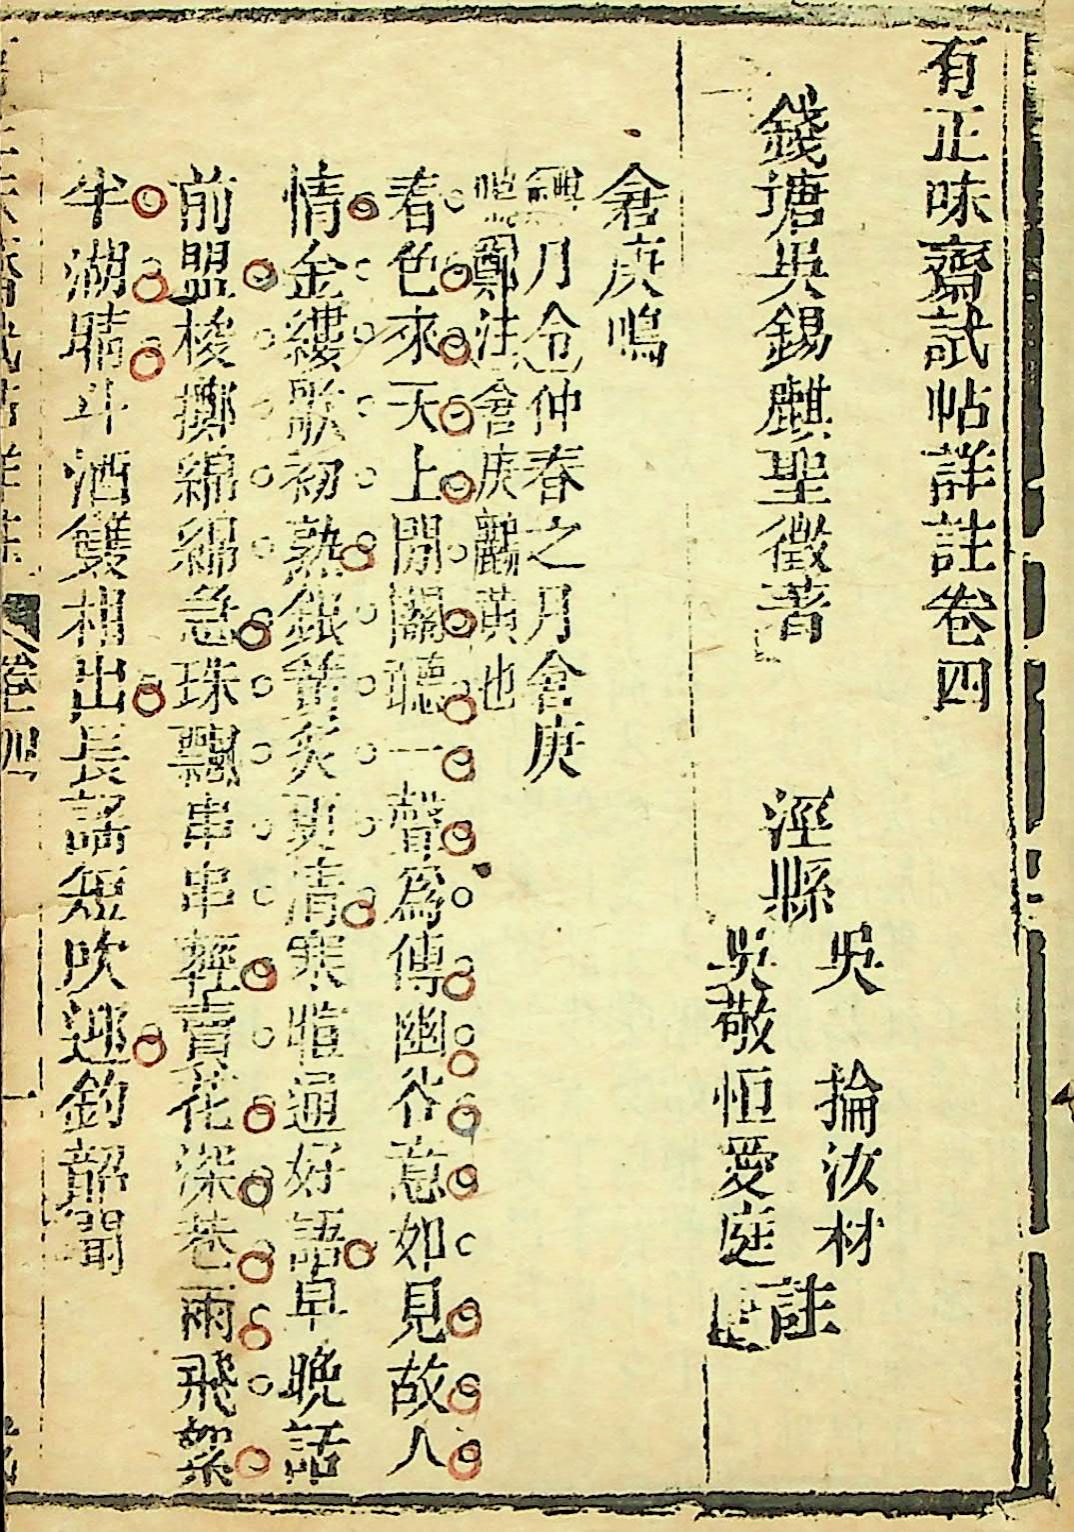 有正味齋試帖詳註卷四
錢塘吳錫麒聖徵著
涇縣
吳 掄汝材
吳敬恒愛庭
註
倉庚鳴
禮月令仲春之月倉庚
鳴鄭注倉庚鸝黃也
春色來天上間關聽一聲為傳幽谷意如見故人
情金縷歌初熟銀簧炙更清寒暄通好語早晚話
前盟梭擲綿綿急珠飄串串輕賣花深巷雨飛絮
半湖晴斗酒雙柑出長謠短吹迎鈞韶聞
卷四
一